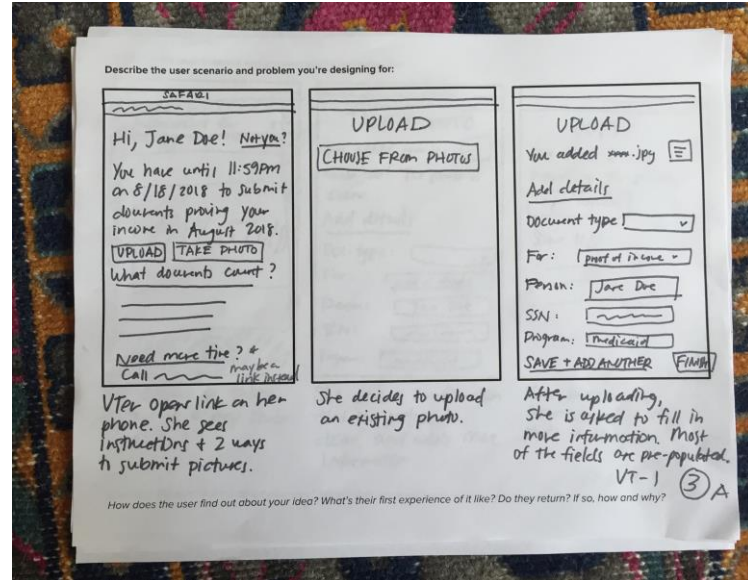 Describe the user scenario and problem you're designing for:
SAFARI
Hi, Jane Doe! Not you?
You have until 11:59PM
on 8/18/2018 to submit
documents proving your
income in August 2018.
UPLOAD TAKE PHOTO
What documents count?
Need more time?
Call
maybe a
link instead
VTer opens link on her
phone. She sees
instructions + 2 ways
to submit pictures.
UPLOAD
CHOOSE FROM PHOTOS
She decides to upload
an existing photo.
UPLOAD
You added .jpg
Add details
Document type
For: proof of income
Person: Jane Doe
SSN:
Program: medicaid
SAVE + ADD ANOTHER FINISH
After uploading,
she is asked to fill in
more information. Most
of the fields are pre-populated.
VT-1
3 A
How does the user find out about your idea? What's their first experience of it like? Do they return? If so, how and why?